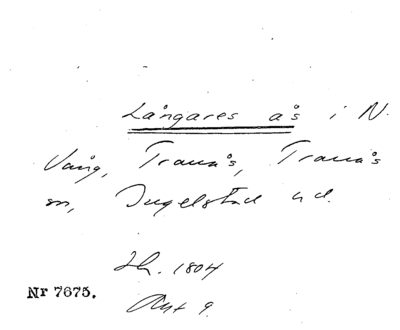 Långares ås i N.
Vång, Tranås, Tranås
sn, Ingelstad hd.
Ih. 1804
Nr 7675.
Akt 9.